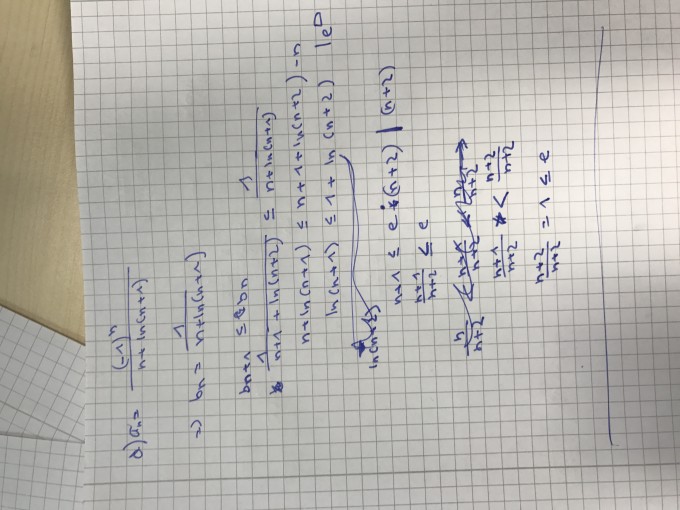 a) an = (-1)^n / n+ln(n+1)
=> bn = 1 / n+ln(n+1)
bn+1 ≤ bn
1 / n+1+ln(n+2) ≤ 1 / n+ln(n+1)
n+ln(n+1) ≤ n+1+ln(n+2) -n
ln(n+1) ≤ 1 + ln(n+2) | e^□
ln(n+2)
n+1 ≤ e·(n+2) | (n+2)
n+1 / n+2 ≤ e
n / n+2 < n+1 / n+2 <
n+1 / n+2 < n+2 / n+2
n+2 / n+2 = 1 ≤ e